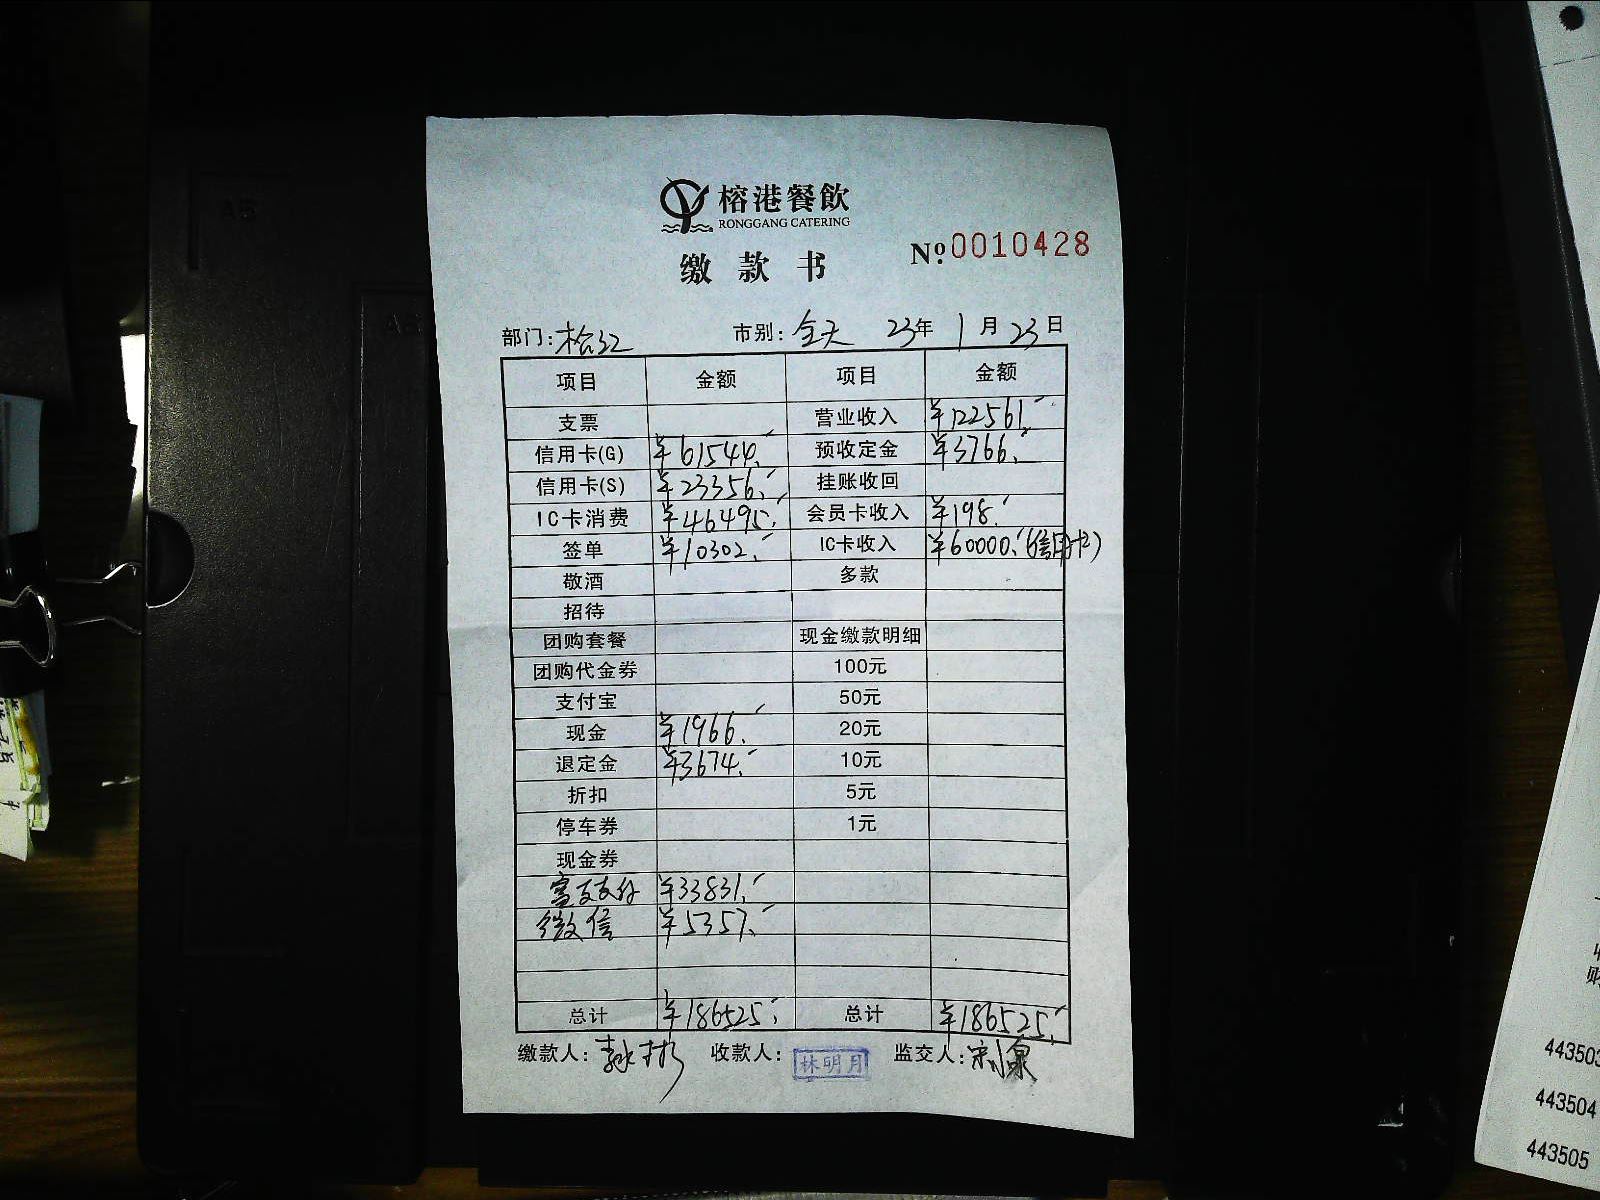 榕港餐飲
RONGGANG CATERING
缴款书
№ 0010428
部门: 松江 市别: 全天 23年 1月 23日
项目 金额 项目 金额
支票 营业收入 ¥122561.
信用卡(G) ¥61544. 预收定金 ¥3766.
信用卡(S) ¥23356. 挂账收回
IC卡消费 ¥46495. 会员卡收入 ¥198.
签单 ¥10302. IC卡收入 ¥60000.(信用卡)
敬酒 多款
招待
团购套餐 现金缴款明细
团购代金券 100元
支付宝 50元
现金 ¥1966. 20元
退定金 ¥3674. 10元
折扣 5元
停车券 1元
现金券
富友支付 ¥33831.
微信 ¥5357.
总计 ¥186525. 总计 ¥186525.
缴款人: 收款人: 林明月 监交人:
443503
443504
443505